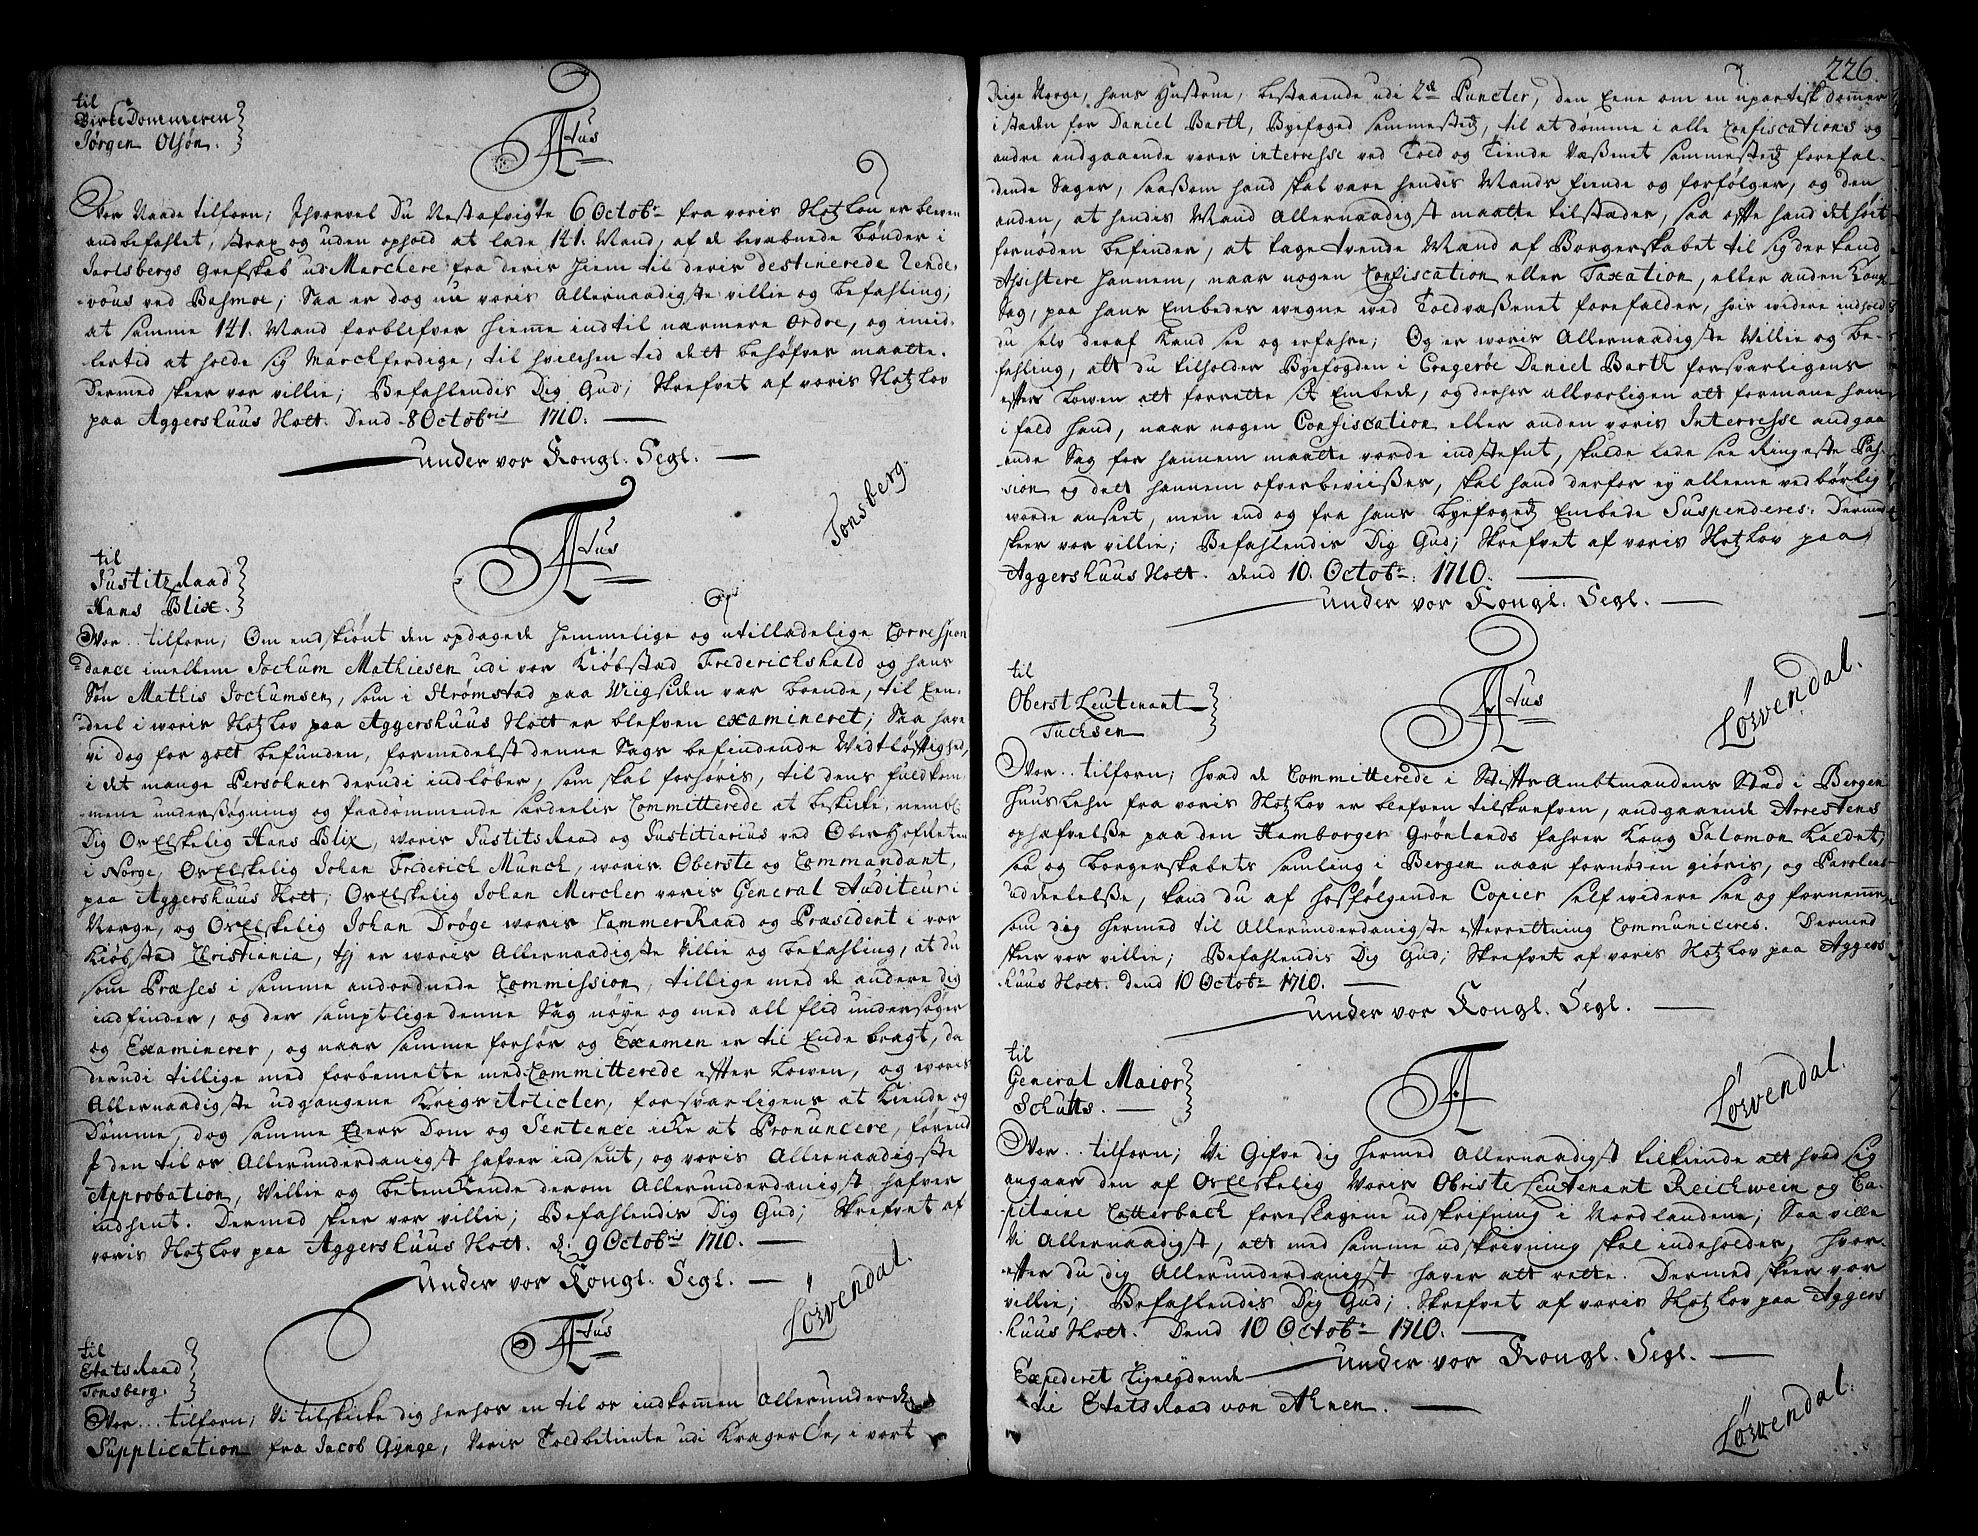 til
BirkeDommeren
Jørgen Olsøn.
F4tus
Vor Naade tilforn; Ihvorvel Du Nestafvigte 6 Octobr fra voris Slotzlov er bleven
andbefahlet, strax og uden ophold at lade 141. Mand, af de bevæbnede bønder i
Jarlsbergs Grefskab ud Marchere fra deris hiem til deris destinerede Rende-
-vous ved Basmoe; Saa er dog nu voris Allernaadigste villie og befahling,
at samme 141. Mand forblifver hieme indtil nærmere Ordre, og imid-
lertid at holde sig Marchferdige, til hvilchen tid det behøfves maatte.
Dermed skeer vor villie; Befahlendis Dig Gud; Skrefvet af voris Slotzlov
paa Aggershuus Slott. Dend 8 Octobris 1710.
under vor Kongl. Segl.
Tonsberg.
F4tus
til
Justitz Raad
Hans Blix.
Vor .. tilforn; Om endskiønt den opdagede hemmelige og utilladelige Correspon
dance imellem Jochum Mathiesen udi vor Kiøbstad Frederichshald og hans
Søn Mathis Jochumsen, som i Strømstad paa Viigsiden var boende, til Een-
deel i voris Slotzlov paa Aggershuus Slott er blefven examineret; Saa have
vi dog for got befunden, formedelst denne Sags befindende Vidtløftighed,
i det mange Persohner derudi indløber, som skal forhøris, til dens fuldkom
mene undersøgning og fradømmende særdeelis Committerede at beskicke, nembl.
Dig Os Elskelig Hans Blix, voris Justits Raad og Justitiarius ved OberHofRetten
i Norge, Os Elskelig Johan Frederich Munch, voris Oberste og Commandant,
paa Aggershuus Slott; Os Elskelig Johan Mercler voris General Auditeur i
Norge, og Os Elskelig Johan Drøge voris Cammer Raad og Præsident i vor
Kiøbstad Christiania, thj er voris Allernaadigste Villie og befahling, at du
som Præses i samme andordnede Commission, tillige med de andere dig
indfinder, og der samptlige denne Sag nøye og med all flid undersøger
og Examinerer, og naar samme forhør og Examen er til Ende bragt, da
derudi tillige med forbemelte med Committerede efter Lowen, og voris
Allernaadigste udgangene Krigs Articler, forsvarligens at Kiende og
Dømme, dog samme Eders Dom og Sentence icke at Pronuncere, førend
J den til os Allerunderdanigst hafver indsent, og voris Allernaadigste
Approbation, Villie og betenckende derom Allerunderdanigst hafver
indhent. Dermed skeer vor villie; Befahlendis Dig Gud; Skrefvet af
voris Slotzlov paa Aggershuus Slott. d. 9 Octobris 1710.
Under vor Kongl. Segl.
Løwendal.
F4tus
til
Etats Raad
Tonsberg.
Vor .. tilforn; Vi tilskicke dig herhos en til os indkommen Allerunderd.
Supplication fra Jacob Gynge, Voris Toldbetiente udi KragerØe, i vort
226.
Rige Norge, hans Hustrue, bestaaende udi 2de Puncter, den Eene om en upartisk dommer
i staden for Daniel Barth, Byefoged sammestedz, til at dømme i alle Confiscations og
andre andgaaende vores interresse ved Told og Tiende Væsenet sammestedz forefal-
dende Sager, saasom hand skal vare hendis Mands fiende og forfølger, og den
anden, at hendis Mand Allernaadigst maatte tilstædes, saa ofte hand det høit
fornøden befinder, at tage tvende Mænd af Borgerskabet til sig der kand
Assistere hannem, naar nogen Confiscation eller Taxation, eller anden Kongl.
Sag, paa hans Embedes wegne wed Toldvæsenet forefalder, hvis widere indhold
du selv deraf kand see og erfahre; Og er woris Allernaadigste Villie og be-
fahling, att du tilholder Byefogden i Cragerøe Daniel Barth forsvarligens
efter Lowen att forrette sit Embede, og derhos allvorligen att formane ham
i fald hand, naar nogen Confiscation eller anden voris Interresse andgaa
ende Sag for hannem maatte vorde indstefnt, skulde lade see Ringeste Pas-
sion og det hannem ofverbeviises, skal hand derfor ey alleene ved børlig
worde anseet, men end og fra hans byefogeds Embede Suspenderes. Dermed
skeer vor villie; Befahlendis Dig Gud; Skrefvet af voris Slotzlov paa
Aggershuus Slott. dend 10. Octobr. 1710.
under vor Kongl. Segl.
Løwendal.
til
Oberst Leutenant
Tuchsen
F4tus
Vor .. tilforn; hvad de Committerede i Stifts Ambtmandens Stad i Bergen
huus Lehn fra voris Slotzlov er blefven tilskrefven, andgaaende Arrestens
ophæfvelse paa den Hamborger Grønlands fahrer Kong Salomon kaldet,
saa og borgerskabets samling i Bergen naar fornøden giøris, og Parolens
uddeelelse, kand du af hosfølgende Copier self widere see og fornemme
som dig hermed til Allerunderdanigste efterretning Communiceres. Dermed
skeer vor villie; Befahlendis Dig Gud; Skrefvet af voris Slotzlov paa Aggers
huus Slott. Dend 10 Octobr 1710.
under vor Kongl. Segl.
Løwendal.
til
General Maior
Schults.
F4
Vor .. tilforn; Vi Gifve dig hermed Allernaadigst tilkiende att hvad sig
angaar den af Os Elskelig Voris Obriste Leutenant Reichwein og Ca-
pitaine Catterbach foreslagene udskrifning i Nordlandene; Saa ville
Vi Allernaadigst, att med samme udskrivning skal indeholdes, hvor-
efter du dig Allerunderdanigst haver att rette. Dermed skeer vor
villie; Befahlendis Dig Gud; Skrefvet af voris Slotzlov paa Aggers
huus Slott. Dend 10 Octobr 1710.
under vor Kongl. Segl.
Expederet Ligelydende
til Etats Raad von Ahnen.
Løwendal.